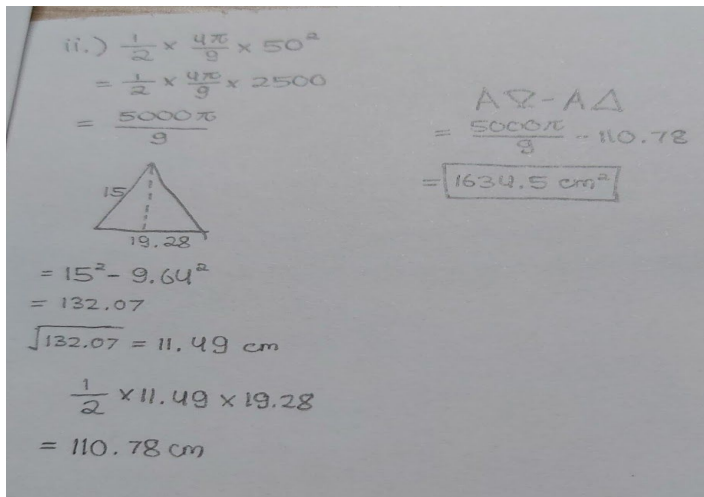 ii.) 1/2 × 4π/9 × 50²
= 1/2 × 4π/9 × 2500
= 5000π/9
15
19.28
= 15² - 9.64²
= 132.07
√132.07 = 11.49 cm
1/2 × 11.49 × 19.28
= 110.78 cm
A⌔ - A△
= 5000π/9 - 110.78
= 1634.5 cm²